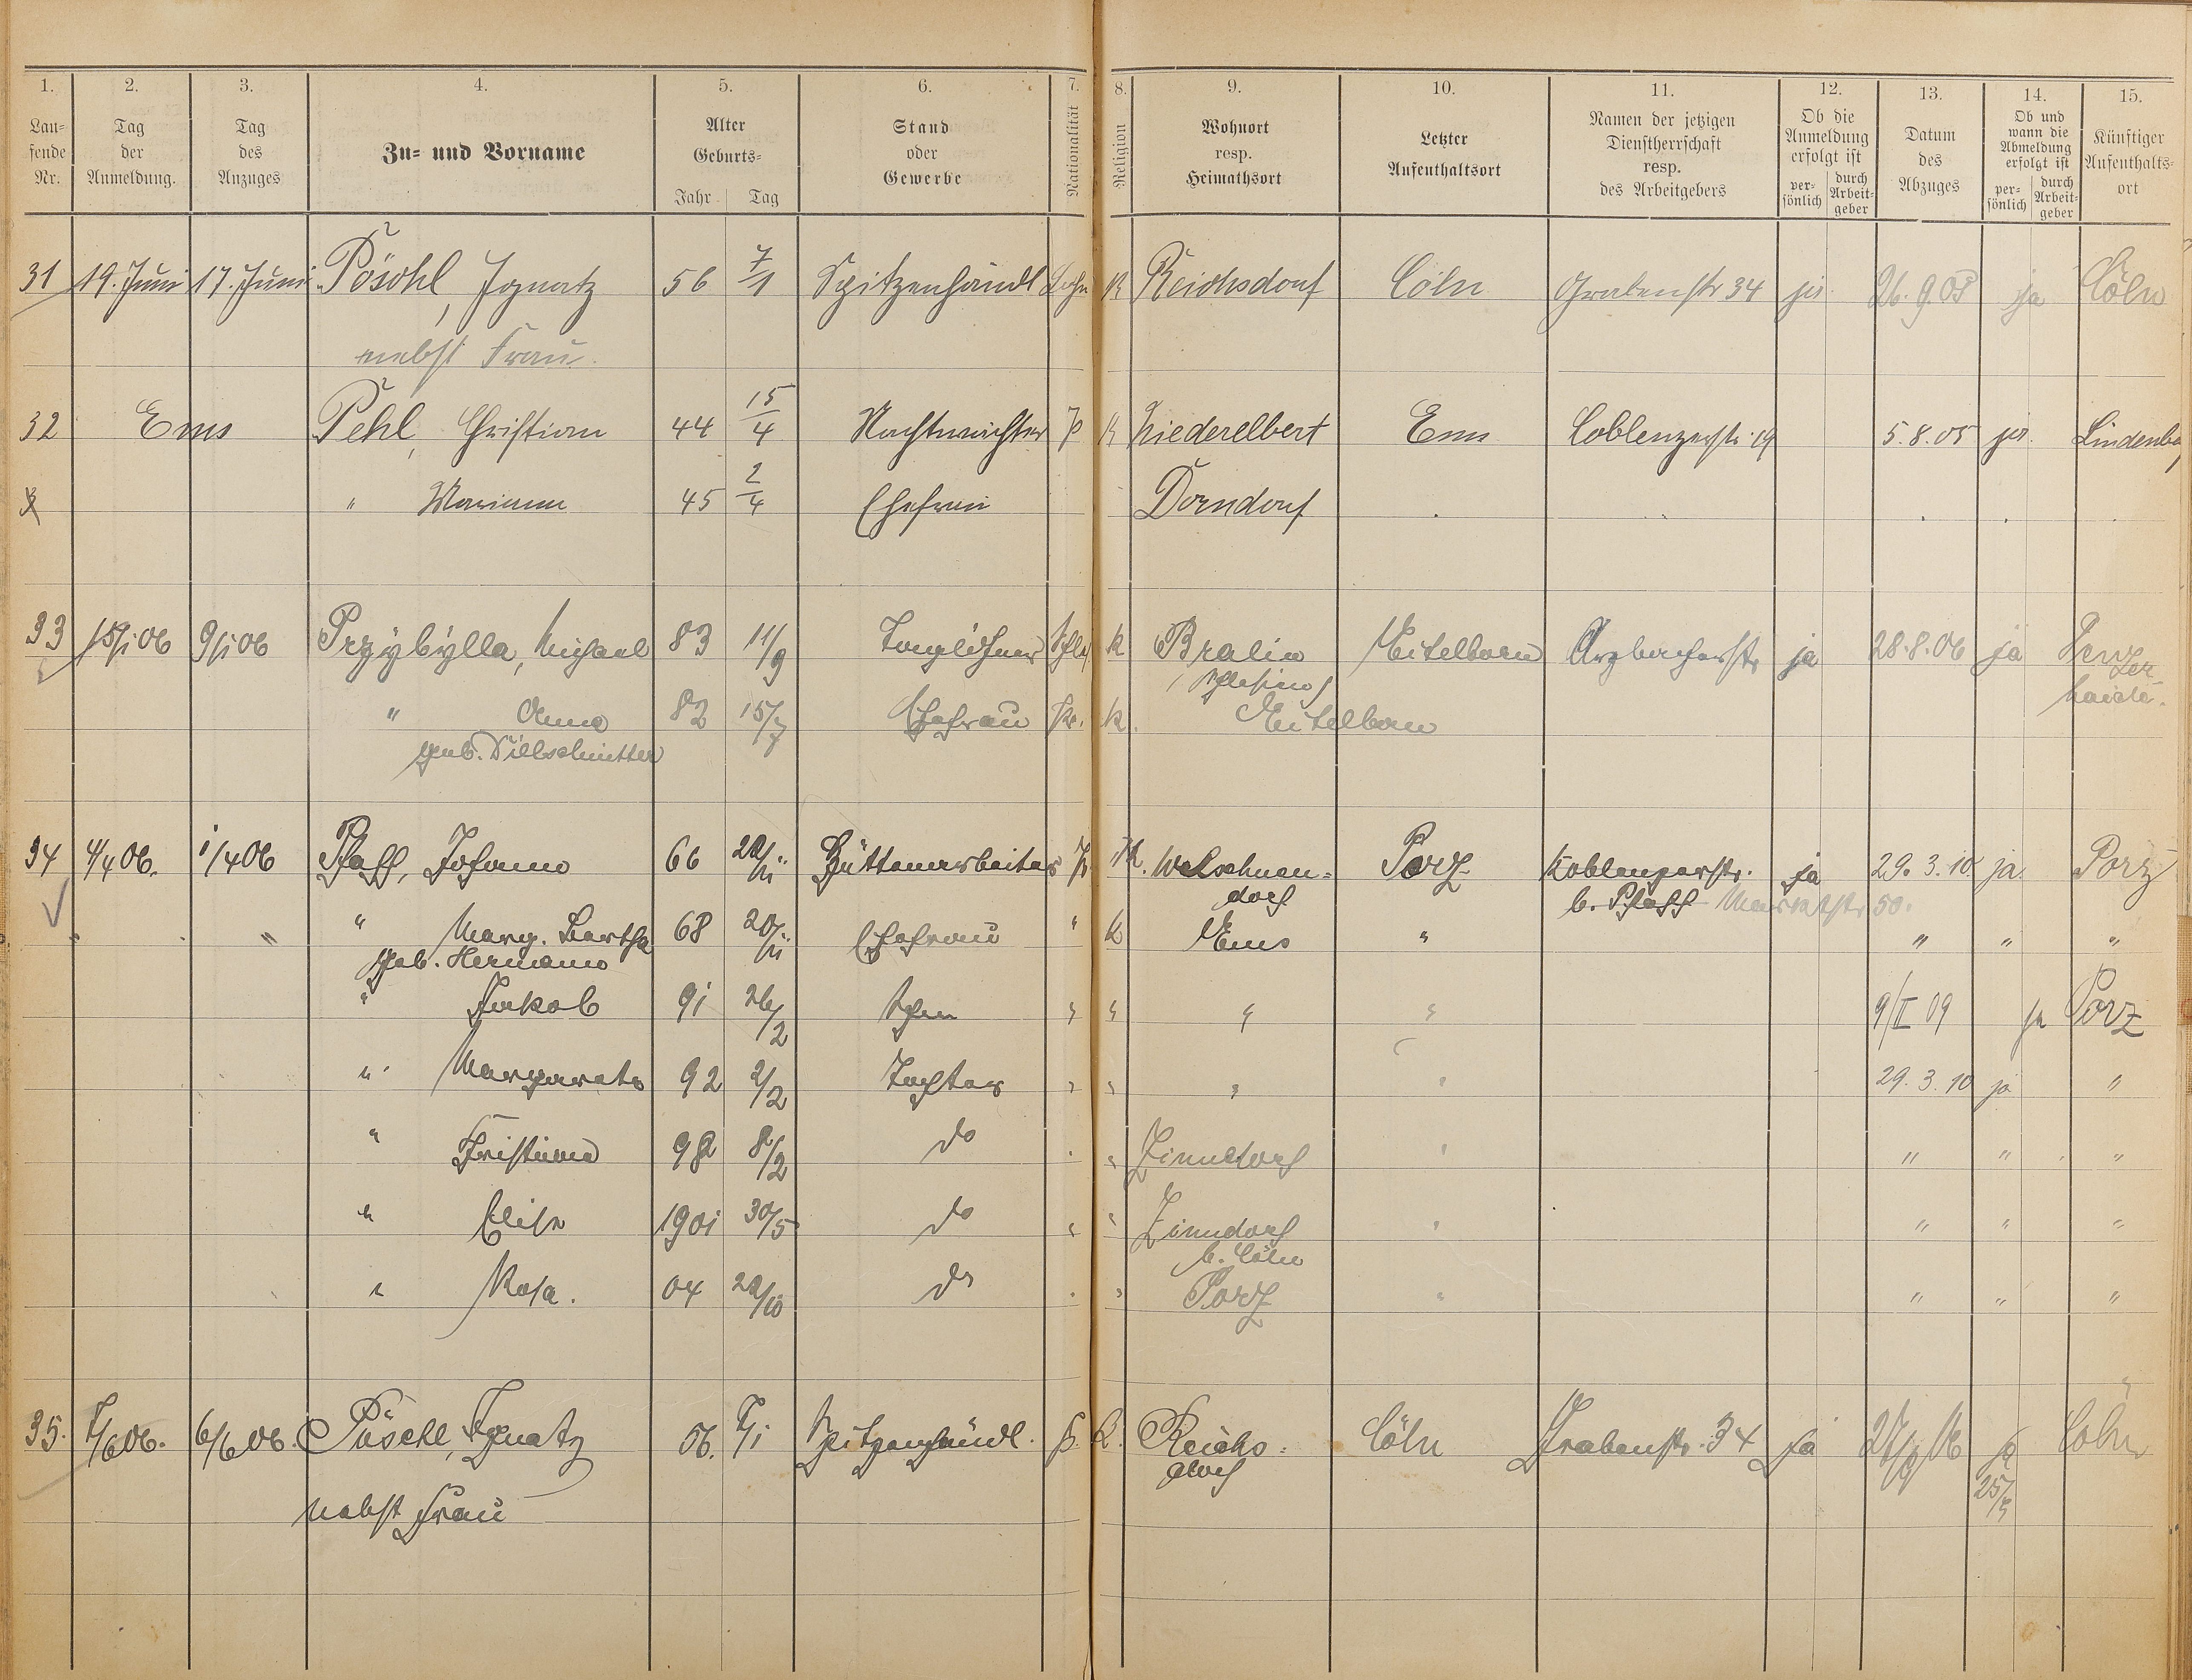 1. 2. 3. 4. 5. 6. 7. 8. 9. 10. 11. 12. 13. 14. 15.
Lau-
fende
Nr.
Tag
der
Anmeldung.
Tag
des
Anzuges
Zu- und Vorname
Alter
Geburts-
Jahr Tag
Stand
oder
Gewerbe
Nationalität
Religion
Wohnort
resp.
Heimathsort
Letzter
Aufenthaltsort
Namen der jetzigen
Dienstherrschaft
resp.
des Arbeitgebers
Ob die
Anmeldung
erfolgt ist
per-
sönlich
durch
Arbeit-
geber
Datum
des
Abzuges
Ob und
wann die
Abmeldung
erfolgt ist
per-
sönlich
durch
Arbeit-
geber
Künftiger
Aufenthalts-
ort
31 19. Juni 17. Juni Pöschl, Ignatz 56 7/1 Spitzenhändl K Reichsdorf Cöln Grabenstr 34 ja 26.9.05 ja Cöln
nebst Frau.
32 Ems Pehl, Christian 44 15/4 Nachtwächter P K Niederelbert Ems Coblenzerstr. 19 5.8.05 ja
" Mariann 45 2/4 Ehefrau Dorndorf
33 15/1 06 9/1 06 Przybylla, Michael 83 11/9 Taglöhner k Bralin Eitelborn Arzbacherstr ja 28.8.06 ja
" Anna 82 15/7 Ehefrau k. Eitelborn
geb.
34 4/4 06. 1/4 06 Pfaff, Johann 66 22/11 Hüttenarbeiter P. K. Welschnen- Porz Koblenzerstr. ja 29.3.10. ja. Porz
dorf b. Pfaff Marktstr 50.
" Marg. Bertha 68 20/11 Ehefrau " k Ems " " " "
geb. Hermann
" Jakob 91 26/2 Sohn " " " " 9/II 09 ja Porz
" Margarete 92 2/2 Tochter " " " " 29.3.10 ja "
" Christina 98 8/2 do " Zündorf " " " "
" Elise 1901 30/5 do " " Zündorf " " " "
b. Cöln
" Rosa. 04 22/10 do " Porz " " " "
35. 7/6 06. 6/6 06. Pöschl, Ignatz 56. 7/1 Spitzenhändl. P. K. Reichs- Cöln Grabenstr. 34 ja 27/9 06 ja Cöln
dorf 25/9
nebst Frau